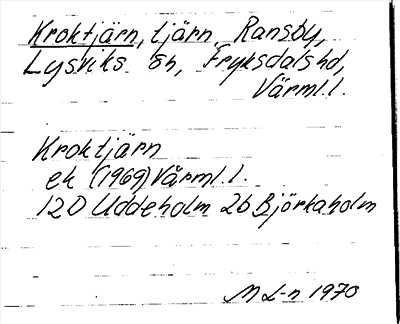 Kroktjärn, tjärn, Ransby,
Lysviks sn, Fryksdals hd,
Värml. l.
Kroktjärn
ek (1969) Värml. l.
12D Uddeholm 2b Björkaholm
M L-n 1970